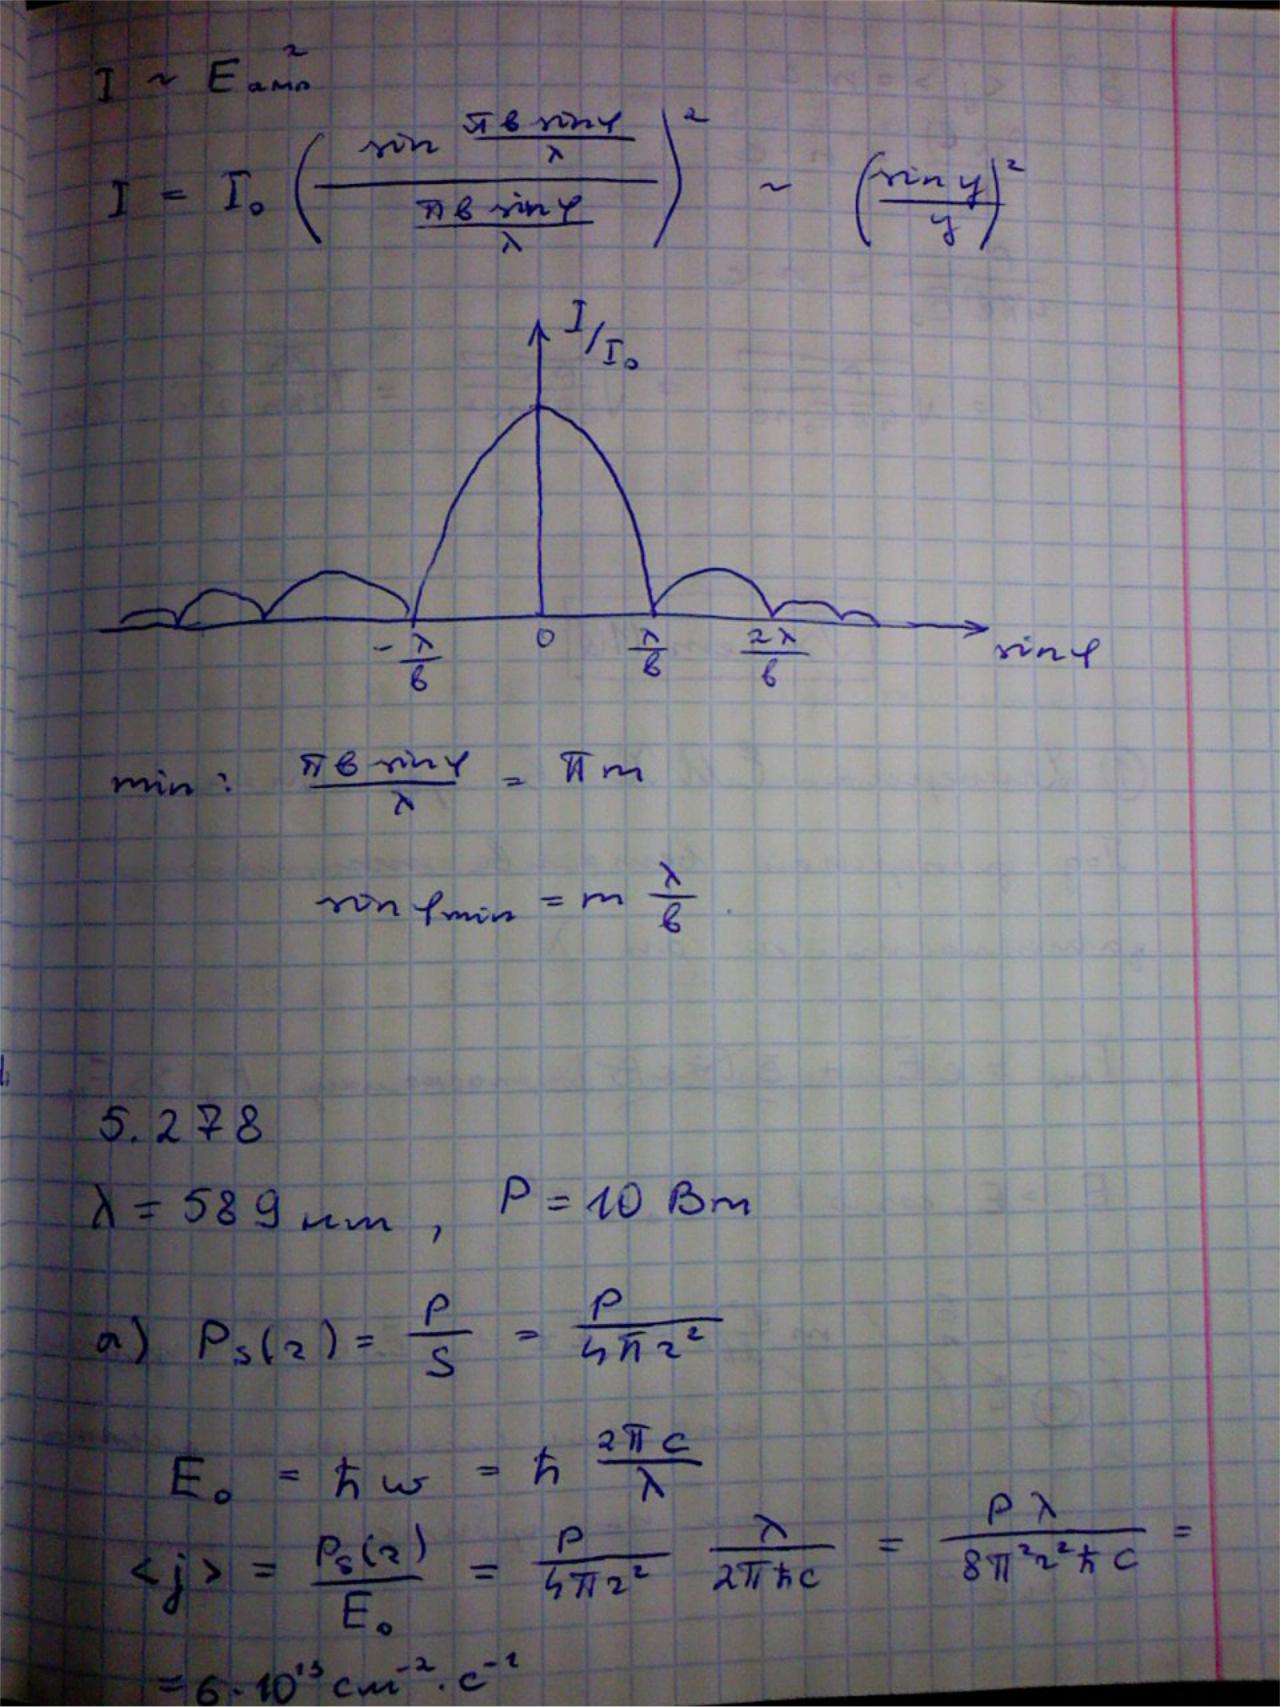 I ~ Eамп²
I = I₀ (sin (πb sinφ/λ) / (πb sinφ/λ))² ~ (sin y / y)²
I/I₀
-λ/b 0 λ/b 2λ/b sinφ
min: πb sinφ/λ = πm
sin φmin = m λ/b
5.278
λ = 589 нм, P = 10 Вт
а) Ps(r) = P/S = P/4πr²
E₀ = ħω = ħ 2πc/λ
<j> = Ps(r)/E₀ = P/4πr² λ/2πħc = Pλ/8π²r²ħc =
= 6·10¹³ см⁻²·с⁻¹